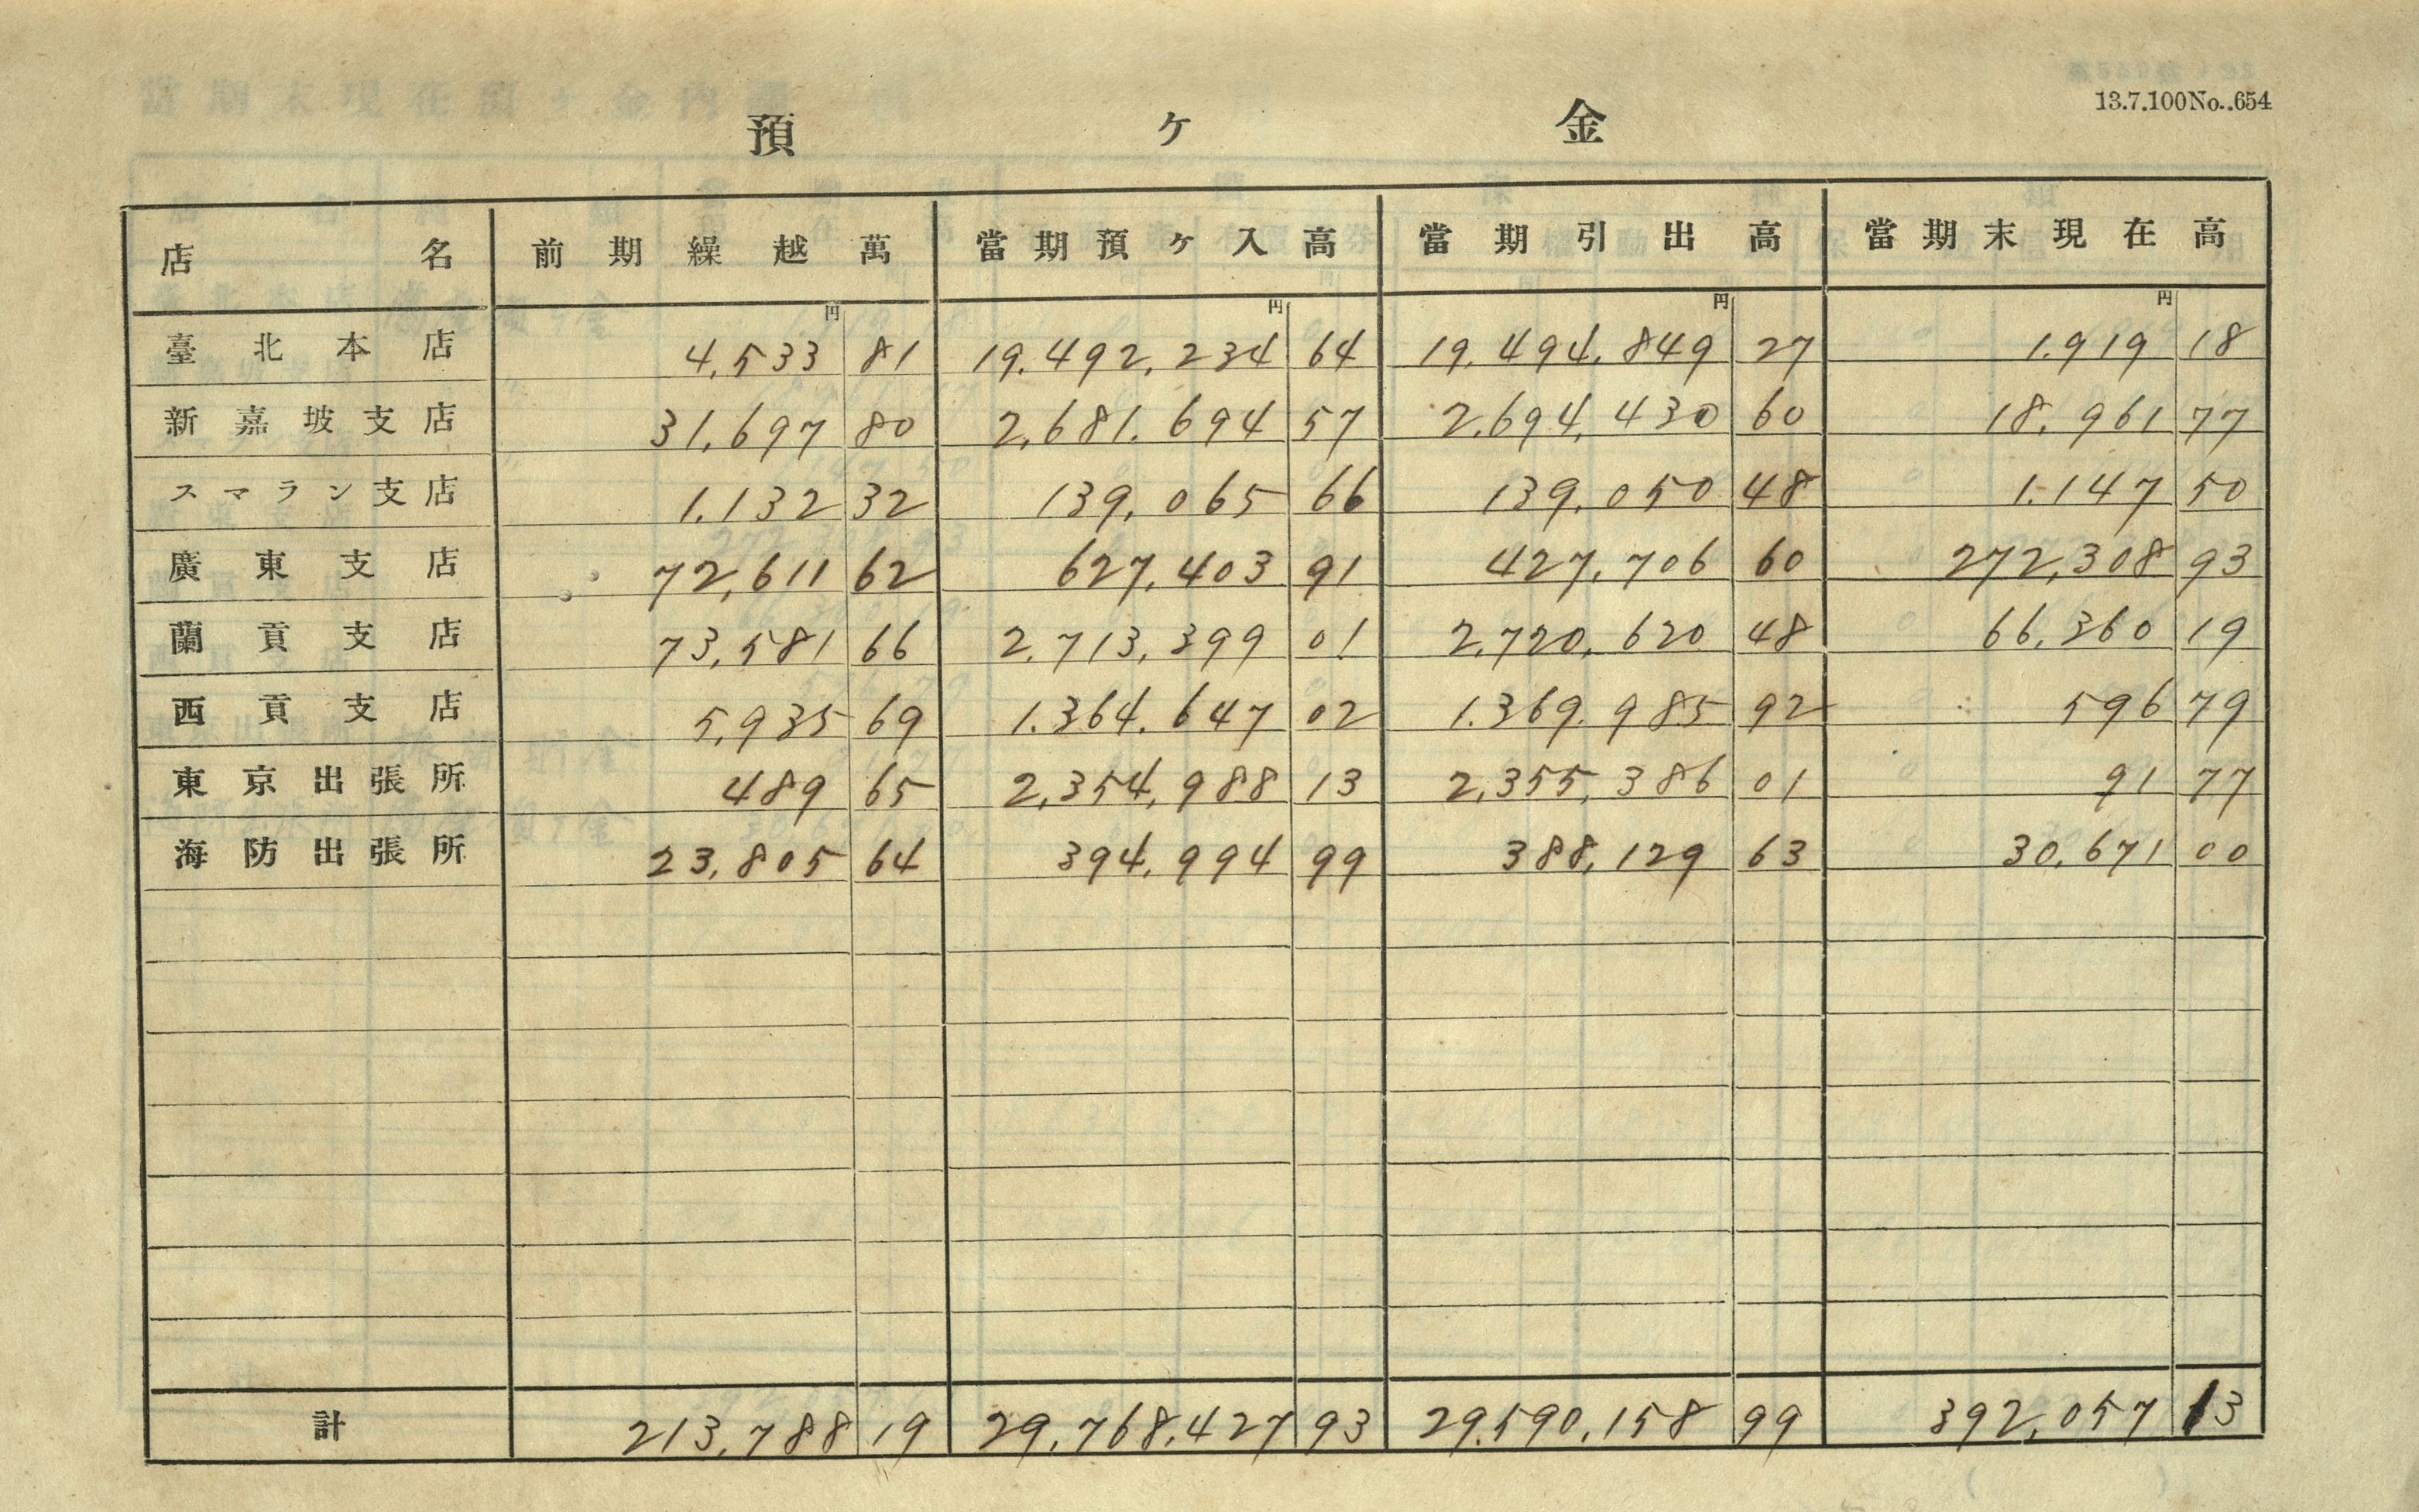 13.7.100No..654
預ヶ金
店名 前期繰越萬 當期預ヶ入高 當期引出高 當期末現在高
円 円 円 円
臺北本店 4,533 81 19,492,234 64 19,494,849 27 1.919 18
新嘉坡支店 31,697 80 2,681,694 57 2,694,430 60 18,961 77
スマラン支店 1.132 32 139,065 66 139,050 48 1.147 50
廣東支店 72,611 62 627,403 91 427,706 60 272,308 93
蘭貢支店 73,581 66 2,713,399 01 2,720,620 48 66,360 19
西貢支店 5,935 69 1.364.647 02 1.369.985 92 596 79
東京出張所 489 65 2,354,988 13 2,355,386 01 91 77
海防出張所 23,805 64 394,994 99 388,129 63 30,671 00
計 213,788 19 29,768,427 93 29,590,158 99 392,057 13